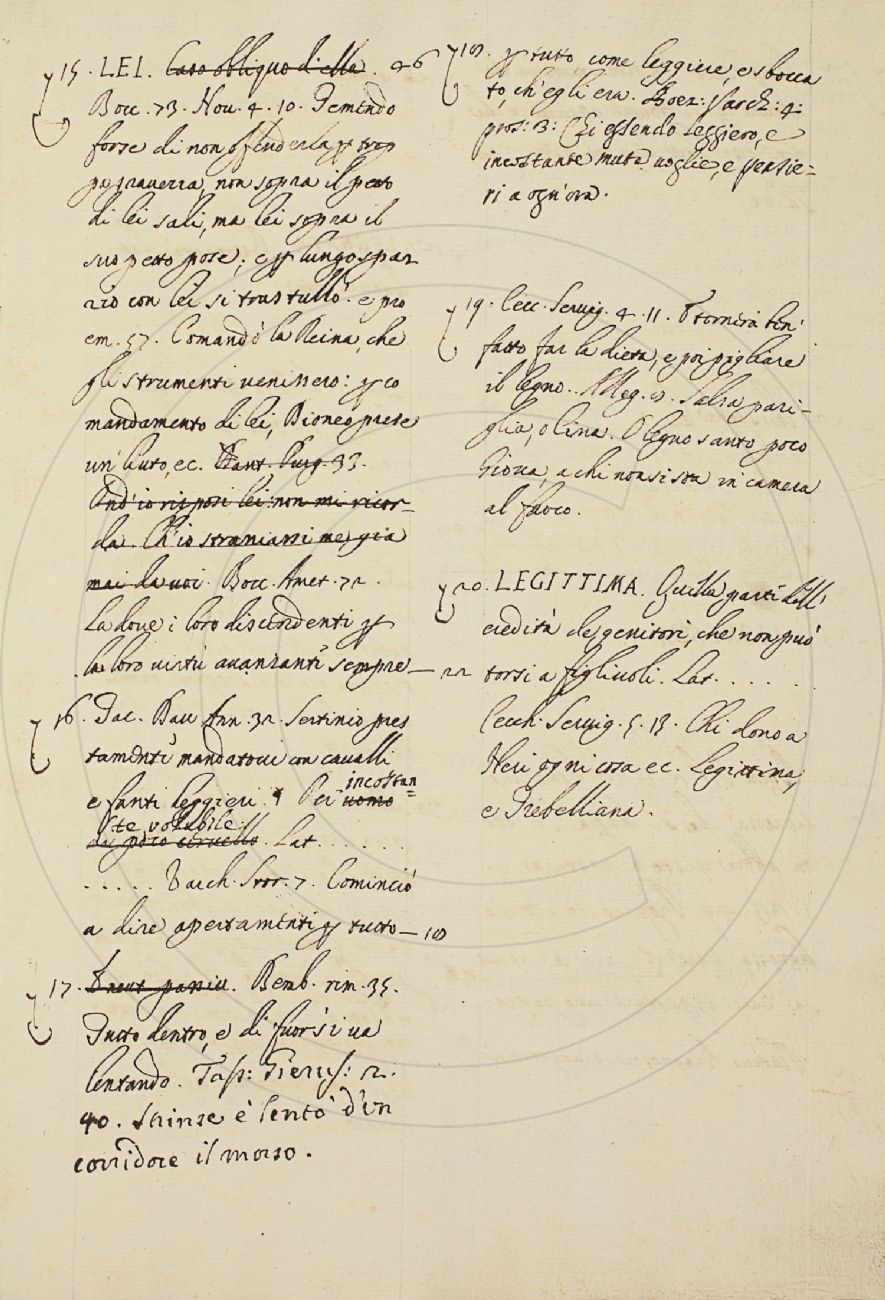 15. LEI. Caso obliquo di ella. 46
Bocc. 73. Nov. 4. 10. Temendo
forse di non offenderla per trop
pa gravezza, non sopra il petto
di lei salì, ma lei sopra il
suo petto pose; e per lungo spa
zio con lei si trastullò. e pro
em. 57. Comandò la Reina, che
gli strumenti venissero: per co
mandamento di lei, Dioneo prese
un liuto, ec. Dant. Purg. 33.
Ond' io risposi lei: non mi ricor-
da. Ch' io straniassi me già
mai da voi. Bocc. Amet. 72.
La dove i loro discendenti per
la loro virtù avanzanti sempre — 22
16. Tac. Dav. Ann. 32. Sertinio pres
tamente mandatovi con cavalli
e fanti leggieri. Per incostan=
uomo
te, volubile.
di poco cervello. Lat. . . . . . .
. . . . . Varch. Stor. 7. Cominciò
a dire apertamente per tutto — 18
17. Bemb. rim. 35.
Tutto dentro, e di fuor si va
lentando. Tass: Gierus: 2:
40. Strinse e lentò d'un
corridore il morso.
18. per tutto, come leggiere, e sbocca
to, ch'egli era. Boez: Varch: 4:
pros: 3: Chi essendo leggiero, e
incostante muta voglie, e pensie=
ri a ogn'ora.
19. Cecc. Servig. 4. 11. Tornerà ben
fatto far la dieta, e poi pigliare
il legno. Alleg. 9. Salsa pari-
glia, o Cina. O legno santo poco
Giova, a chi non si sta in camera
al fuoco.
20. LEGITTIMA. Quella parte dell'
eredità de genitori, che non può
torsi a figliuoli. Lat. . . . . .
Cecch. Servig. 5. 13. Chi dono a
Neri ogni cosa ec. Legittima,
e Trebelliana.